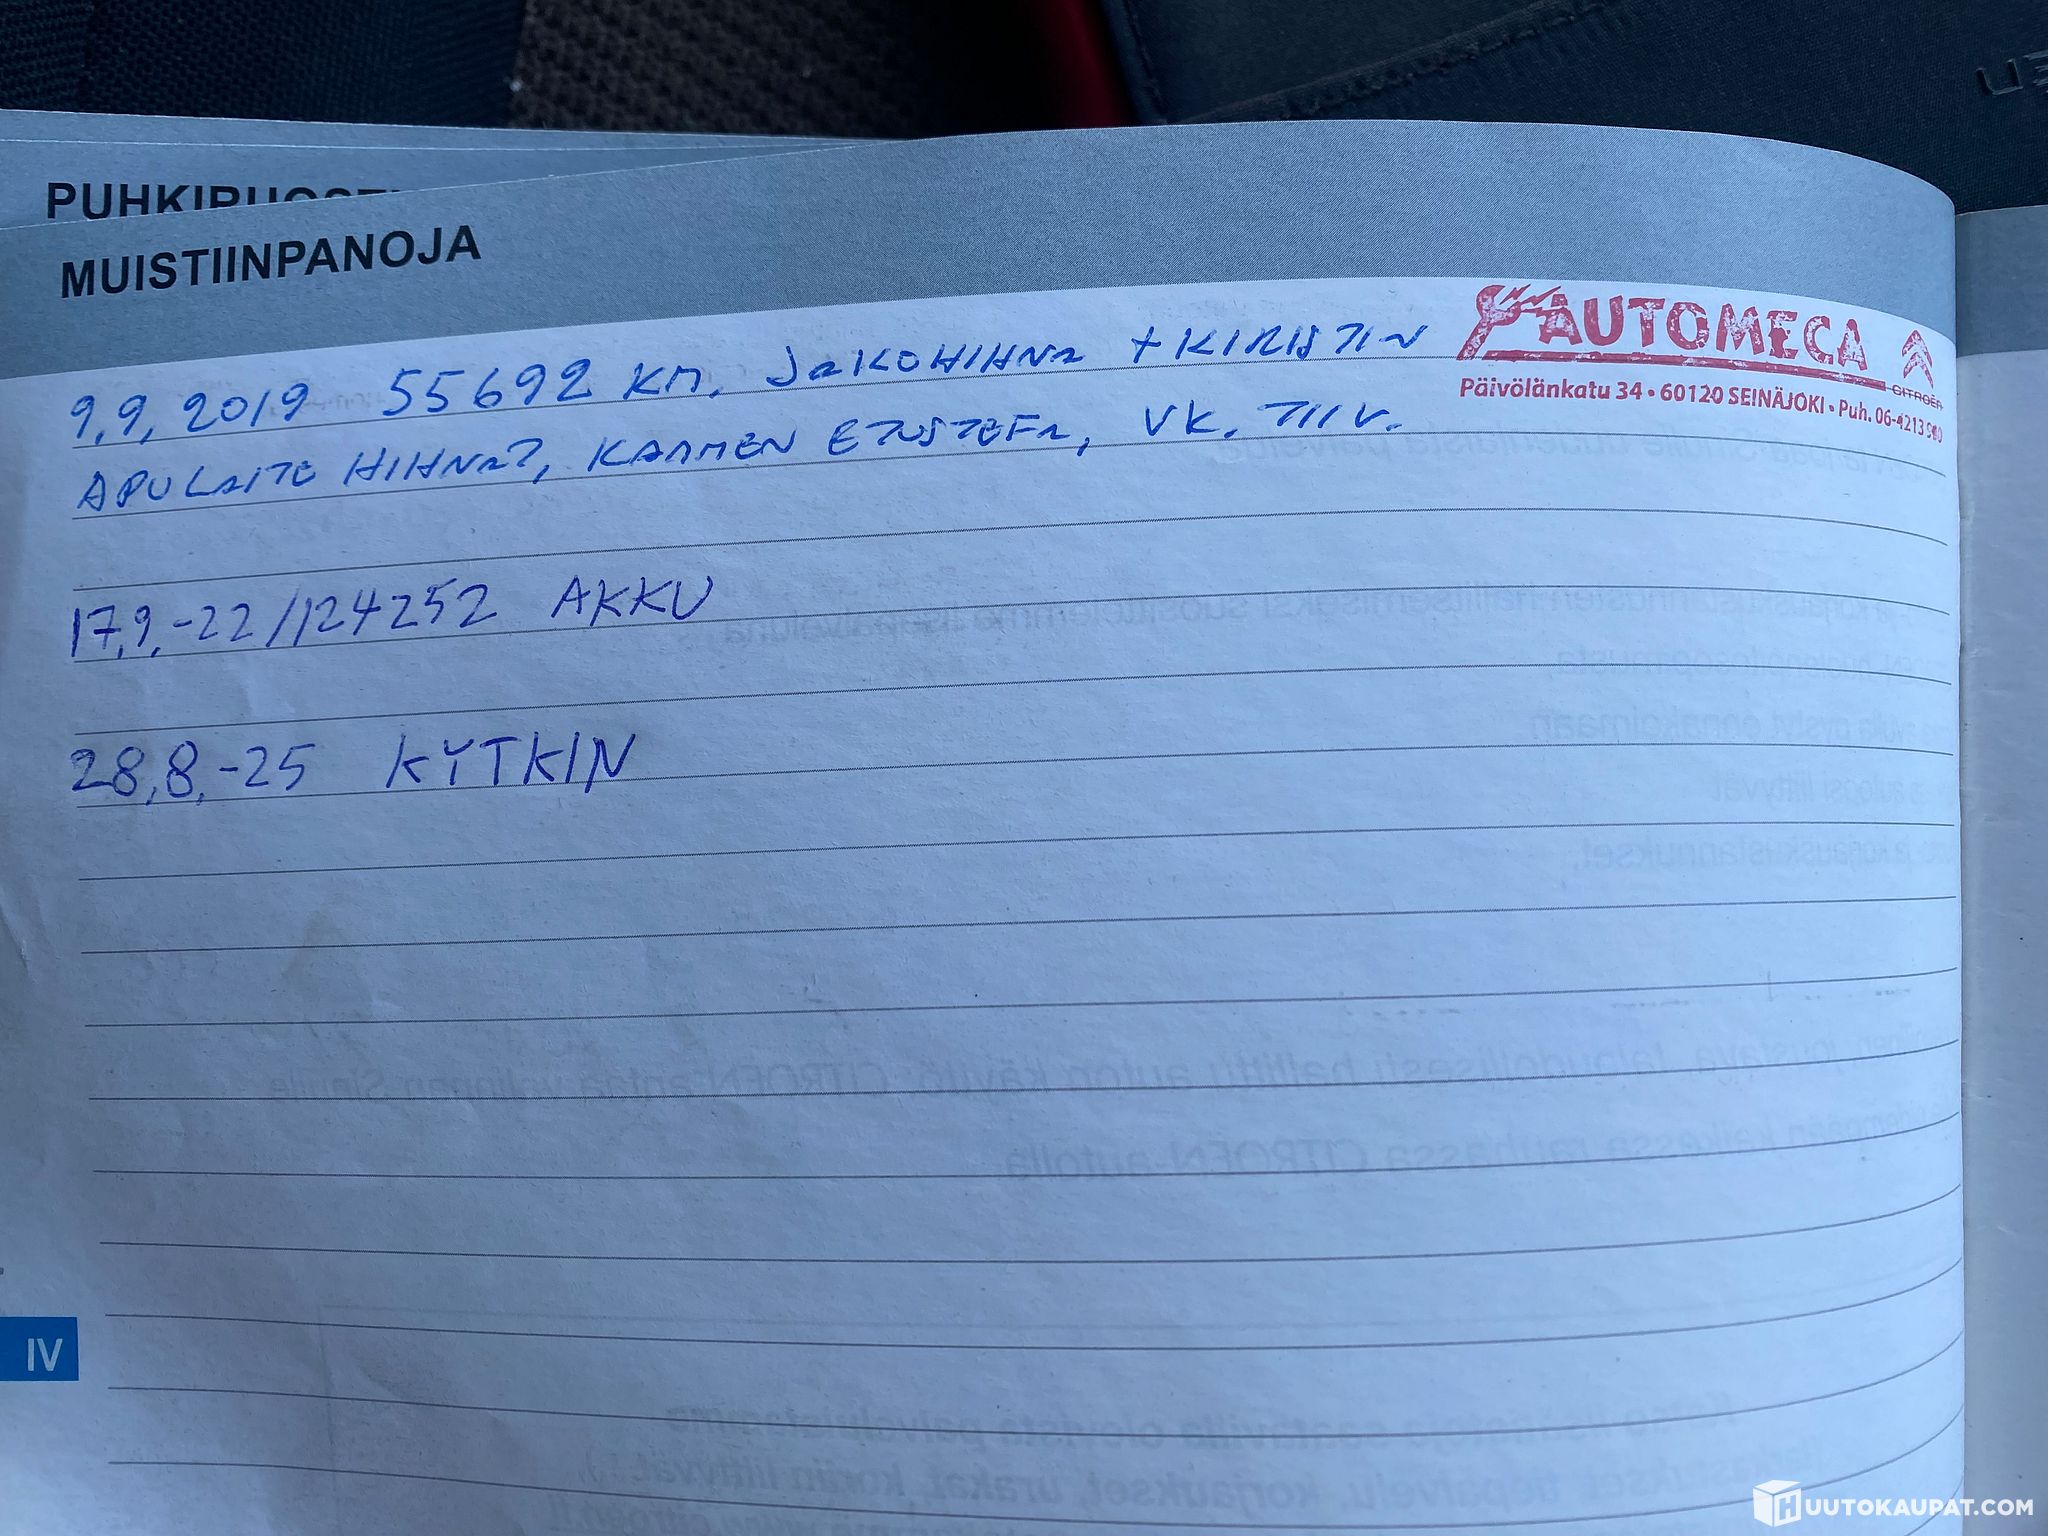 UEN
PUHKIRUOSTE
MUISTIINPANOJA
AUTOMECA
CITROËN
Päivölänkatu 34 • 60120 SEINÄJOKI • Puh. 06-4213
9,9, 2019 55692 KM. JAKOHIHNA + KIRISTIN
APULAITE HIHNAT, KAMMEN ETUSTEFA, VK. TIIV.
17,9,-22/124252 AKKU
28,8,-25 KYTKIN
IV
HUUTOKAUPAT.COM